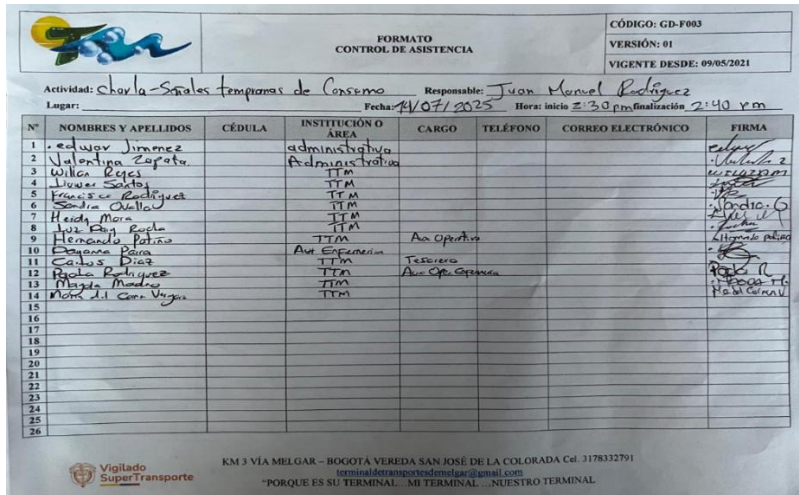 CÓDIGO: GD-F003
FORMATO
CONTROL DE ASISTENCIA
VERSIÓN: 01
VIGENTE DESDE: 09/05/2021
Actividad: Charla-Señales tempranas de Consumo Responsable: Juan Manuel Rodriguez
Lugar: Fecha: 14/07/2025 Hora: inicio 2:30 pm finalización 2:40 pm
N° NOMBRES Y APELLIDOS CÉDULA INSTITUCIÓN O ÁREA CARGO TELÉFONO CORREO ELECTRÓNICO FIRMA
1 .edwar Jimenez administrativa
2 Valentina Zapata. Administrativa
3 Wilian Reyes TTM
4 Santos TTM
5 Francisco Rodriguez TTM
6 Sandra Ovalle TTM Sandra. G
7 Heidy Mora TTM
8 Luz Rocha TTM
9 Hernando Patiño TTM Aux Operativo Hernando patiño
10 Dayanna Aux Enfermeria
11 Carlos Diaz TTM Tesorero
12 Paola Rodriguez TTM Paola R
13 Magda TTM
14 del Carm Vargas TTM
15
16
17
18
19
20
21
22
23
24
25
26
Vigilado
SuperTransporte
KM 3 VÍA MELGAR – BOGOTÁ VEREDA SAN JOSÉ DE LA COLORADA Cel. 3178332791
terminaldetransportesdemelgar@gmail.com
"PORQUE ES SU TERMINAL... MI TERMINAL ...NUESTRO TERMINAL